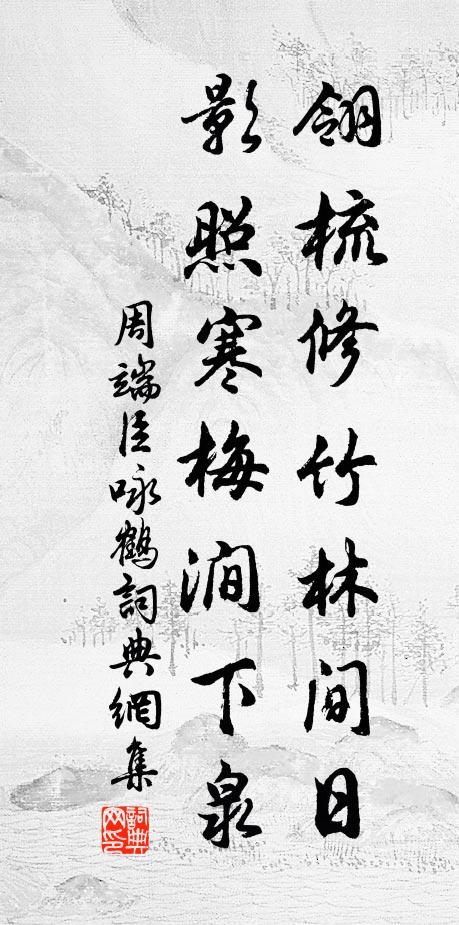 翎梳修竹林间日
影照寒梅涧下泉
周端臣咏鹤词典网集
词典网印